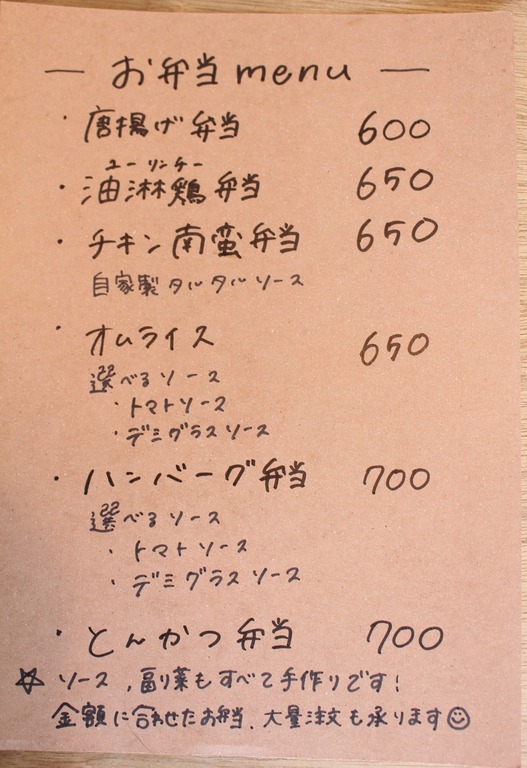 — お弁当 menu —
・唐揚げ弁当 600
ユーリンチー
・油淋鶏弁当 650
・チキン南蛮弁当 650
自家製タルタルソース
・オムライス 650
選べるソース
・トマトソース
・デミグラスソース
・ハンバーグ弁当 700
選べるソース
・トマトソース
・デミグラスソース
・とんかつ弁当 700
☆ ソース、副り菜もすべて手作りです!
金額に合わせたお弁当、大量注文も承ります☺